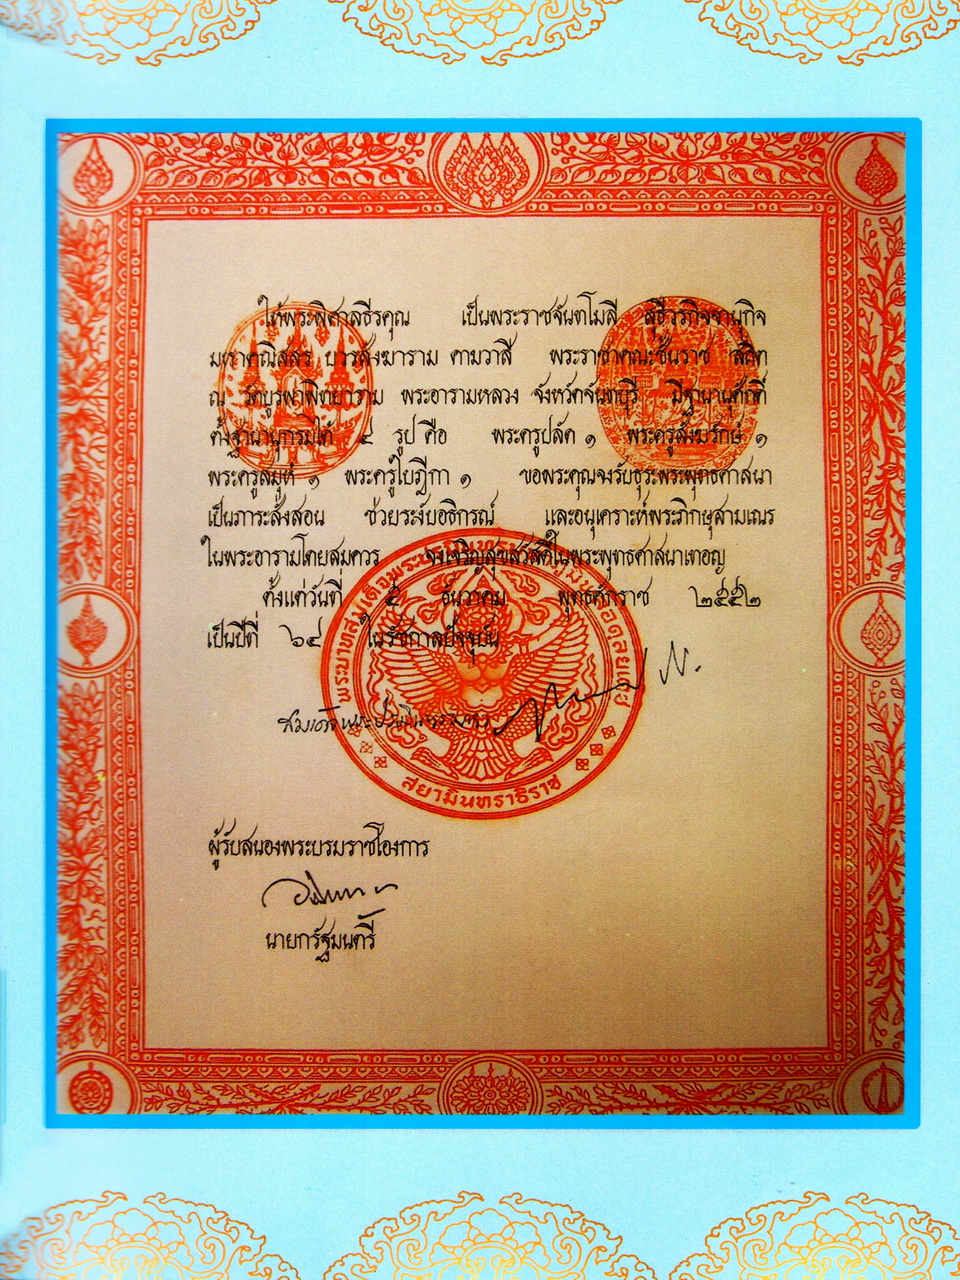 ให้พระพิศาลธีรคุณ เป็นพระราชจันทโมลี สุธีวรกิจจานุกิจ
มหาคณิสสร บวรสังฆาราม คามวาสี พระราชาคณะชั้นราช สถิต
ณ วัดบูรพาพิทยาราม พระอารามหลวง จังหวัดจันทบุรี มีฐานานุศักดิ์
ตั้งฐานานุกรมได้ ๔ รูป คือ พระครูปลัด ๑ พระครูสังฆรักษ์ ๑
พระครูสมุห์ ๑ พระครูใบฎีกา ๑ ขอพระคุณจงรับธุระพระพุทธศาสนา
เป็นภาระสั่งสอน ช่วยระงับอธิกรณ์ และอนุเคราะห์พระภิกษุสามเณร
ในพระอารามโดยสมควร จงเจริญสุขสวัสดิ์ในพระพุทธศาสนาเทอญ
ตั้งแต่วันที่ ๕ ธันวาคม พุทธศักราช ๒๕๕๒
เป็นปีที่ ๖๔ ในรัชกาลปัจจุบัน
สยามินทราธิราช
ผู้รับสนองพระบรมราชโองการ
นายกรัฐมนตรี